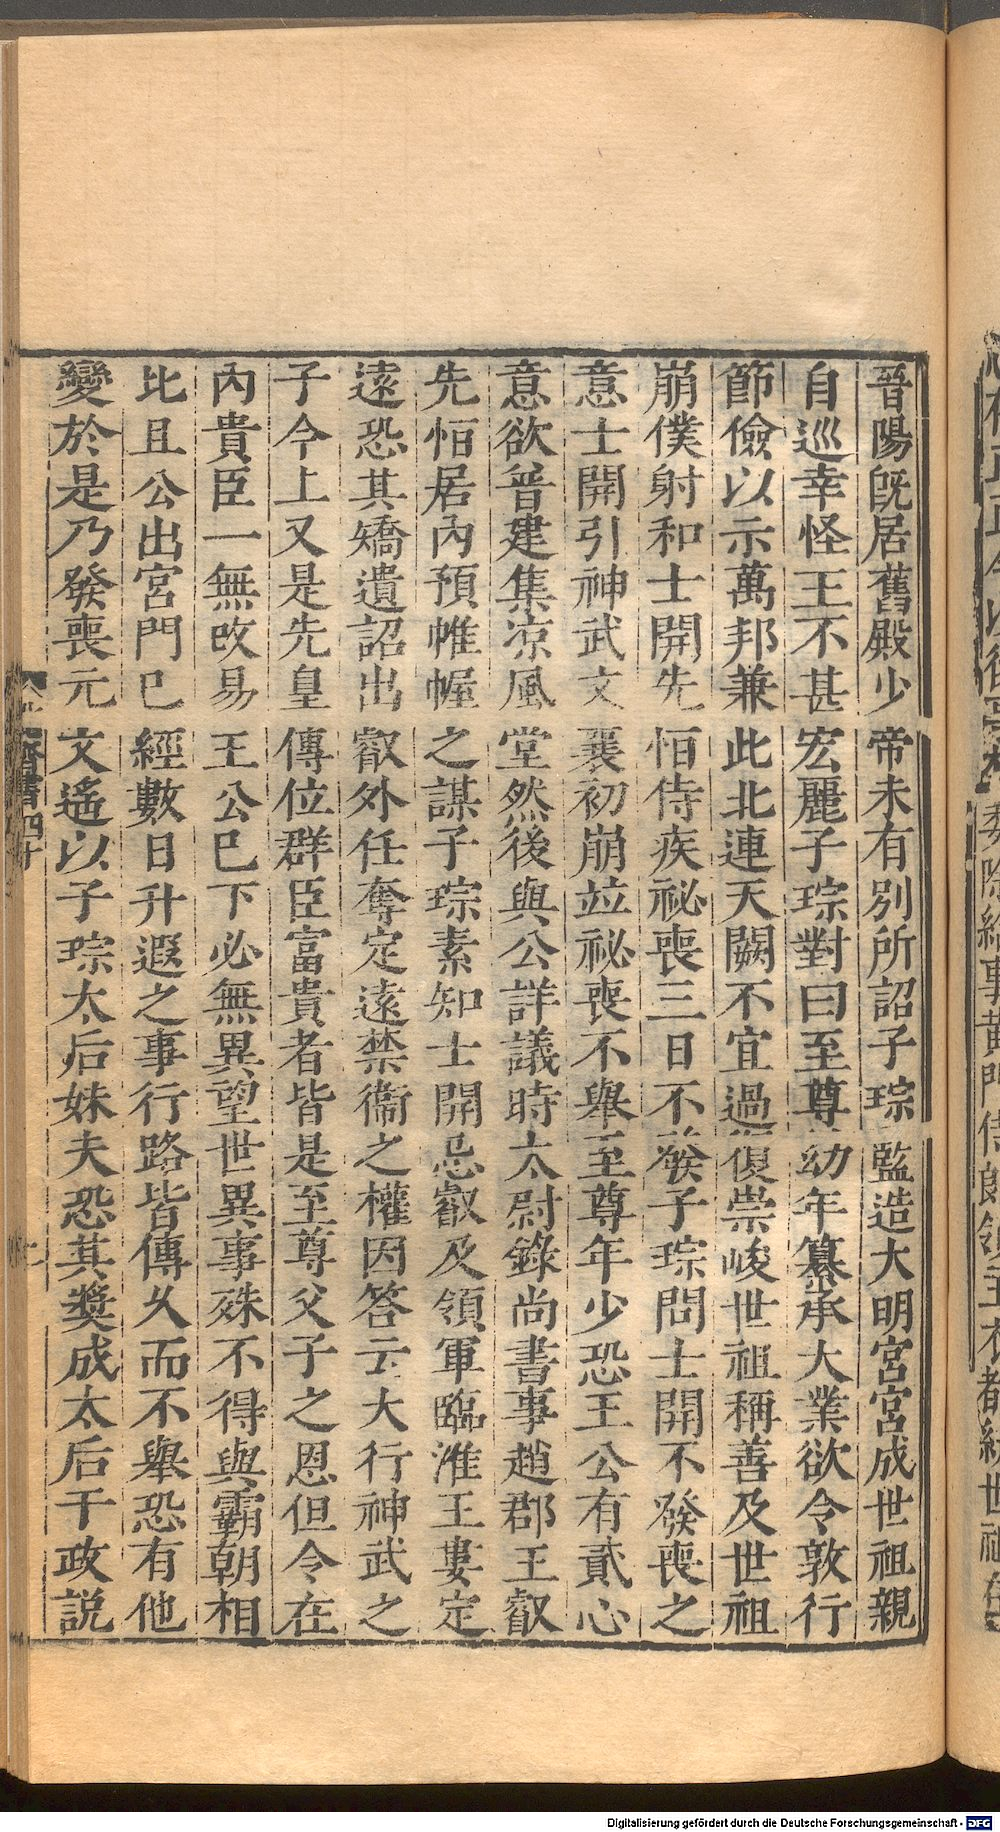 晉陽旣居舊殿少帝未有別所詔子琮監造大明宮宮成世祖親
自巡幸怪王不甚宏麗子琮對曰至尊幼年纂承大業欲令敦行
節儉以示萬邦兼此北連天闕不宜過復崇峻世祖稱善及世祖
崩僕射和士開先恒侍疾祕喪三日不發子琮問士開不發喪之
意士開引神武文襄初崩並祕喪不舉至尊年少恐王公有貳心
意欲普建集凉風堂然後與公詳議時太尉錄尚書事趙郡王叡
先恒居內預帷幄之謀子琮素知士開忌叡及領軍臨淮王婁定
遠恐其矯遺詔出叡外任奪定遠禁衞之權因答云大行神武之
子今上又是先皇傳位群臣富貴者皆是至尊父子之恩但令在
內貴臣一無改易王公已下必無異望世異事殊不得與霸朝相
比且公出宮門已經數日升遐之事行路皆傳久而不舉恐有他
變於是乃發喪元文遙以子琮太后妹夫恐其獎成太后干政說
齊書四十
Digitalisierung gefördert durch die Deutsche Forschungsgemeinschaft - DFG